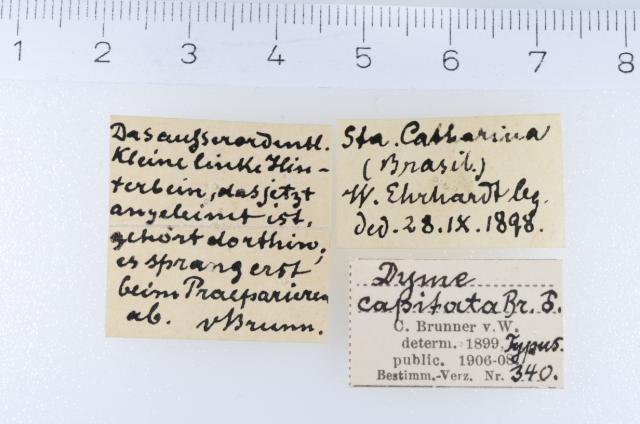 1 2 3 4 5 6 7 8
Das ausserordentl.
Kleine linke Hin-
terbein, das jetzt
angeleimt ist,
gehört dorthin;
es sprang erst
beim Praeparieren
ab. v Brunn.
Sta. Catharina
(Brasil.)
W. Ehrhardt leg.
ded. 28.IX.1898.
Dyme
capitata Br.
C. Brunner v. W.
determ. 1899. Typus.
public. 1906-08
Bestimm.-Verz. Nr. 340.